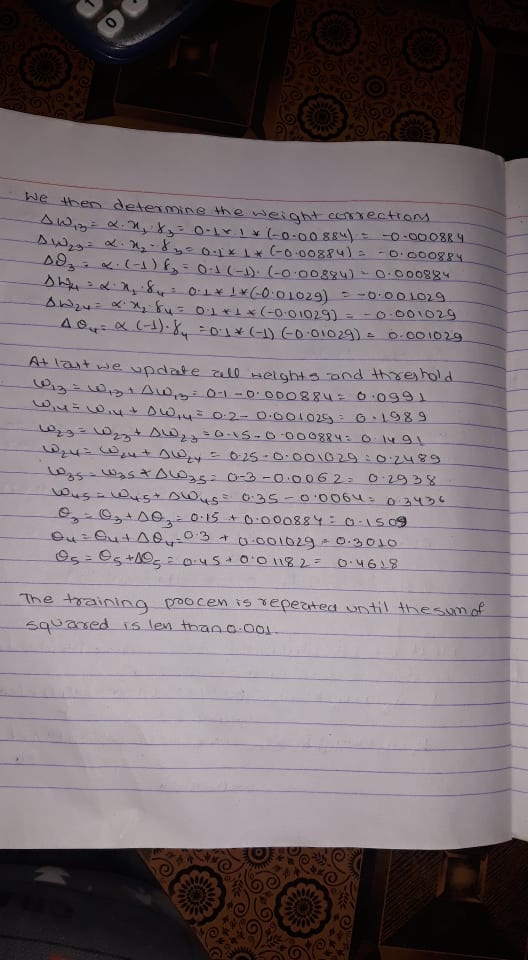 We then determine the weight corrections
Δω13 = α. x1. δ3 = 0.1 * 1 * (-0.00884) = -0.000884
Δω23 = α. x2. δ3 = 0.1 * 1 * (-0.00884) = -0.000884
Δθ3 = α. (-1) δ3 = 0.1 (-1). (-0.00884) = 0.000884
Δω4 = α. x1. δ4 = 0.1 * 1 * (-0.01029) = -0.001029
Δω24 = α. x2. δ4 = 0.1 * 1 * (-0.01029) = -0.001029
Δθ4 = α (-1). δ4 = 0.1 * (-1) (-0.01029) = 0.001029
At last we update all weights and threshold
ω13 = ω13 + Δω13 = 0.1 - 0.000884 = 0.0991
ω14 = ω14 + Δω14 = 0.2 - 0.001029 = 0.1989
ω23 = ω23 + Δω23 = 0.15 - 0.000884 = 0.1491
ω24 = ω24 + Δω24 = 0.25 - 0.001029 = 0.2489
ω35 = ω35 * Δω35 = 0.3 - 0.0062 = 0.2938
ω45 = ω45 + Δω45 = 0.35 - 0.0064 = 0.3436
θ3 = θ3 + Δθ3 = 0.15 + 0.000884 = 0.1509
θ4 = θ4 + Δθ4 = 0.3 + 0.001029 = 0.3010
θ5 = θ5 + Δθ5 = 0.45 + 0.01182 = 0.4618
The training process is repeated until the sum of
squared is less than 0.001.